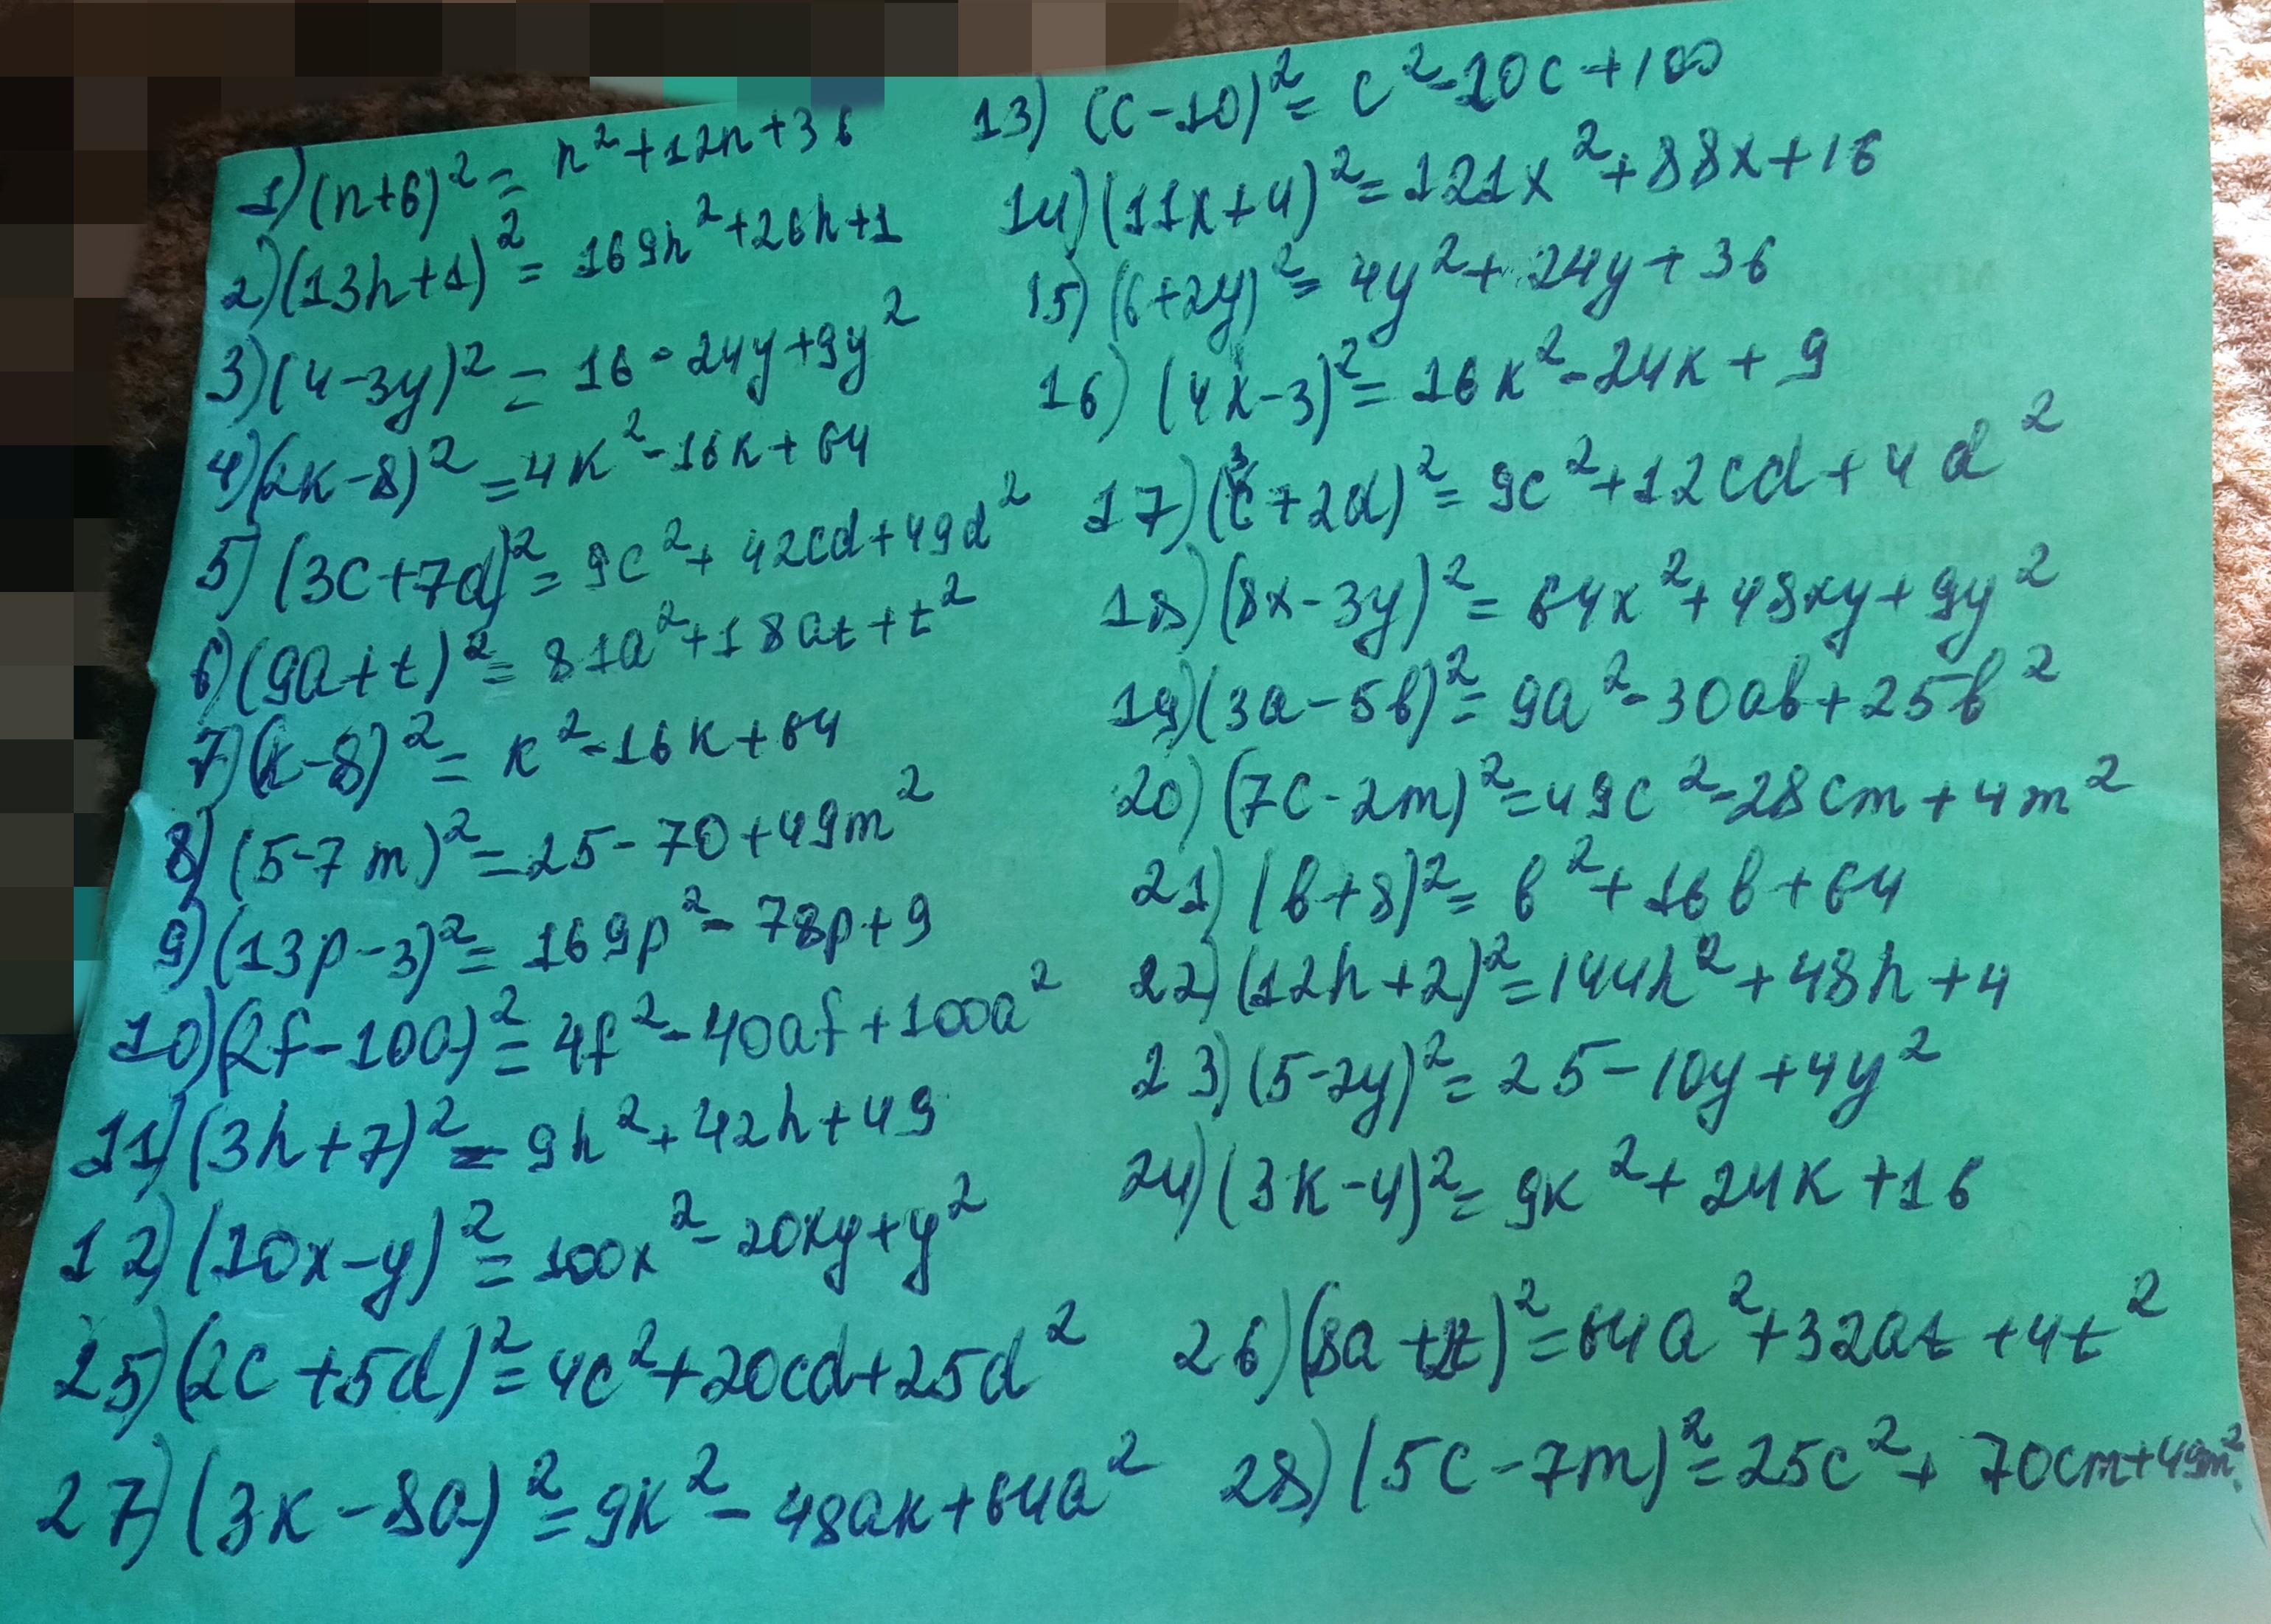 1) (n+6)² = n²+12n+36
2) (13h+1)² = 169h²+26h+1
3) (4-3y)² = 16-24y+9y²
4) (2k-8)² = 4k²-16k+64
5) (3c+7d)² = 9c²+42cd+49d²
6) (9a+t)² = 81a²+18at+t²
7) (k-8)² = k²-16k+64
8) (5-7m)² = 25-70+49m²
9) (13p-3)² = 169p²-78p+9
10) (2f-10a)² = 4f²-40af+100a²
11) (3h+7)² = 9h²+42h+49
12) (10x-y)² = 100x²-20xy+y²
25) (2c+5d)² = 4c²+20cd+25d²
27) (3k-8a)² = 9k²-48ak+64a²
13) (c-10)² = c²-20c+100
14) (11x+4)² = 121x²+88x+16
15) (6+2y)² = 4y²+24y+36
16) (4x-3)² = 16x²-24x+9
17) (3c+2d)² = 9c²+12cd+4d²
18) (8x-3y)² = 64x²+48xy+9y²
19) (3a-5b)² = 9a²-30ab+25b²
20) (7c-2m)² = 49c²-28cm+4m²
21) (b+8)² = b²+16b+64
22) (12h+2)² = 144h²+48h+4
23) (5-2y)² = 25-10y+4y²
24) (3k-4)² = 9k²+24k+16
26) (8a+2t)² = 64a²+32at+4t²
28) (5c-7m)² = 25c²+70cm+49m²